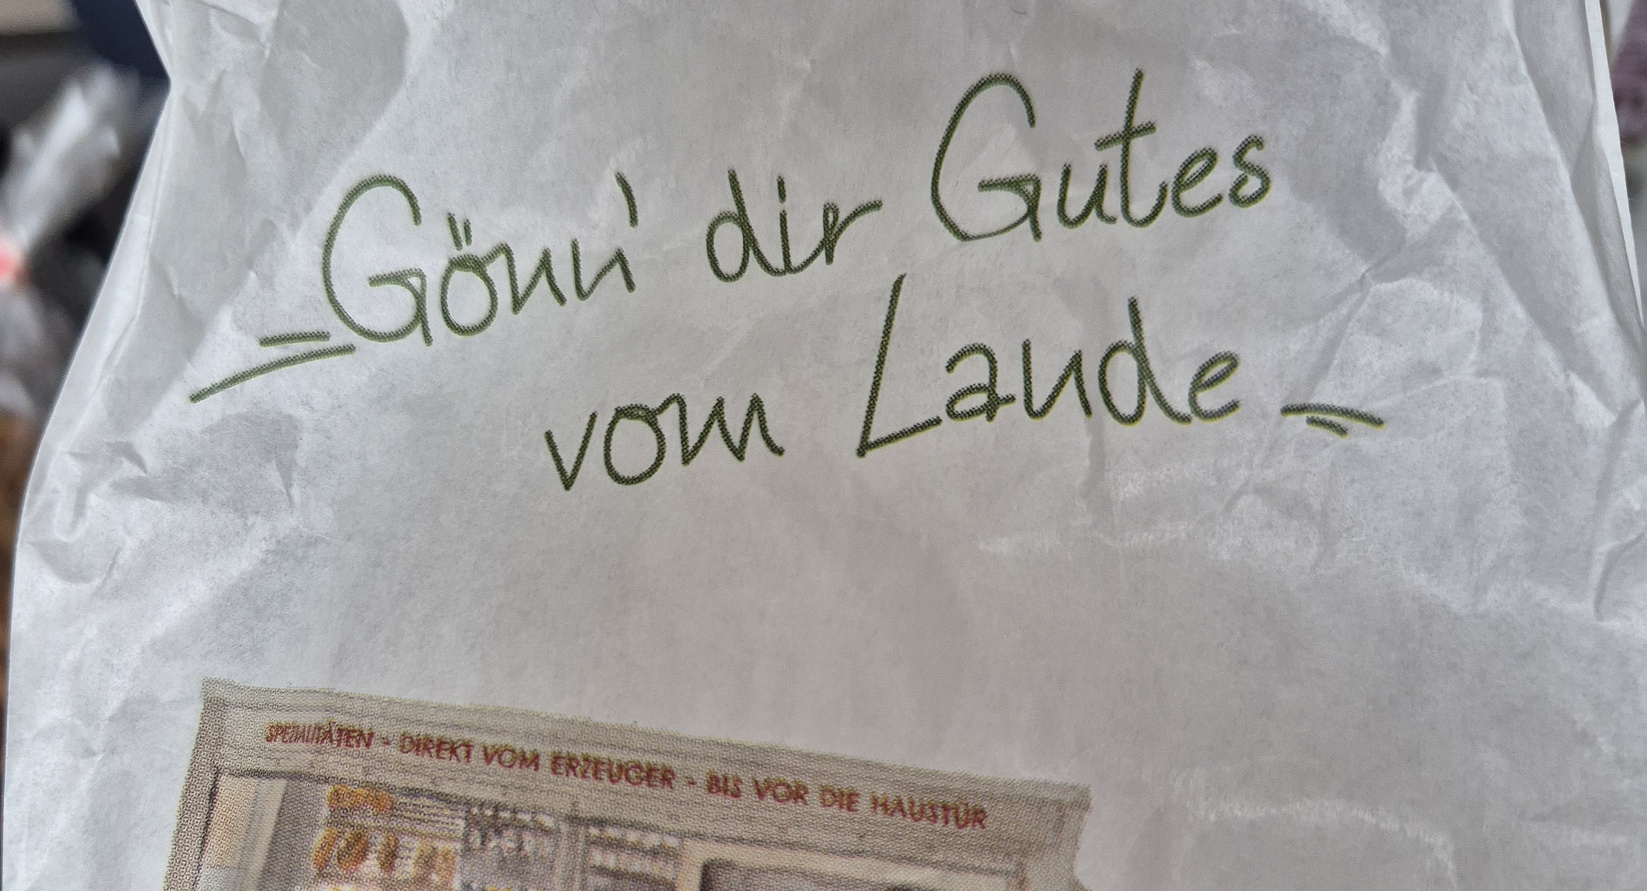 Gönn' dir Gutes
vom Lande
SPEZIALITÄTEN - DIREKT VOM ERZEUGER - BIS VOR DIE HAUSTÜR